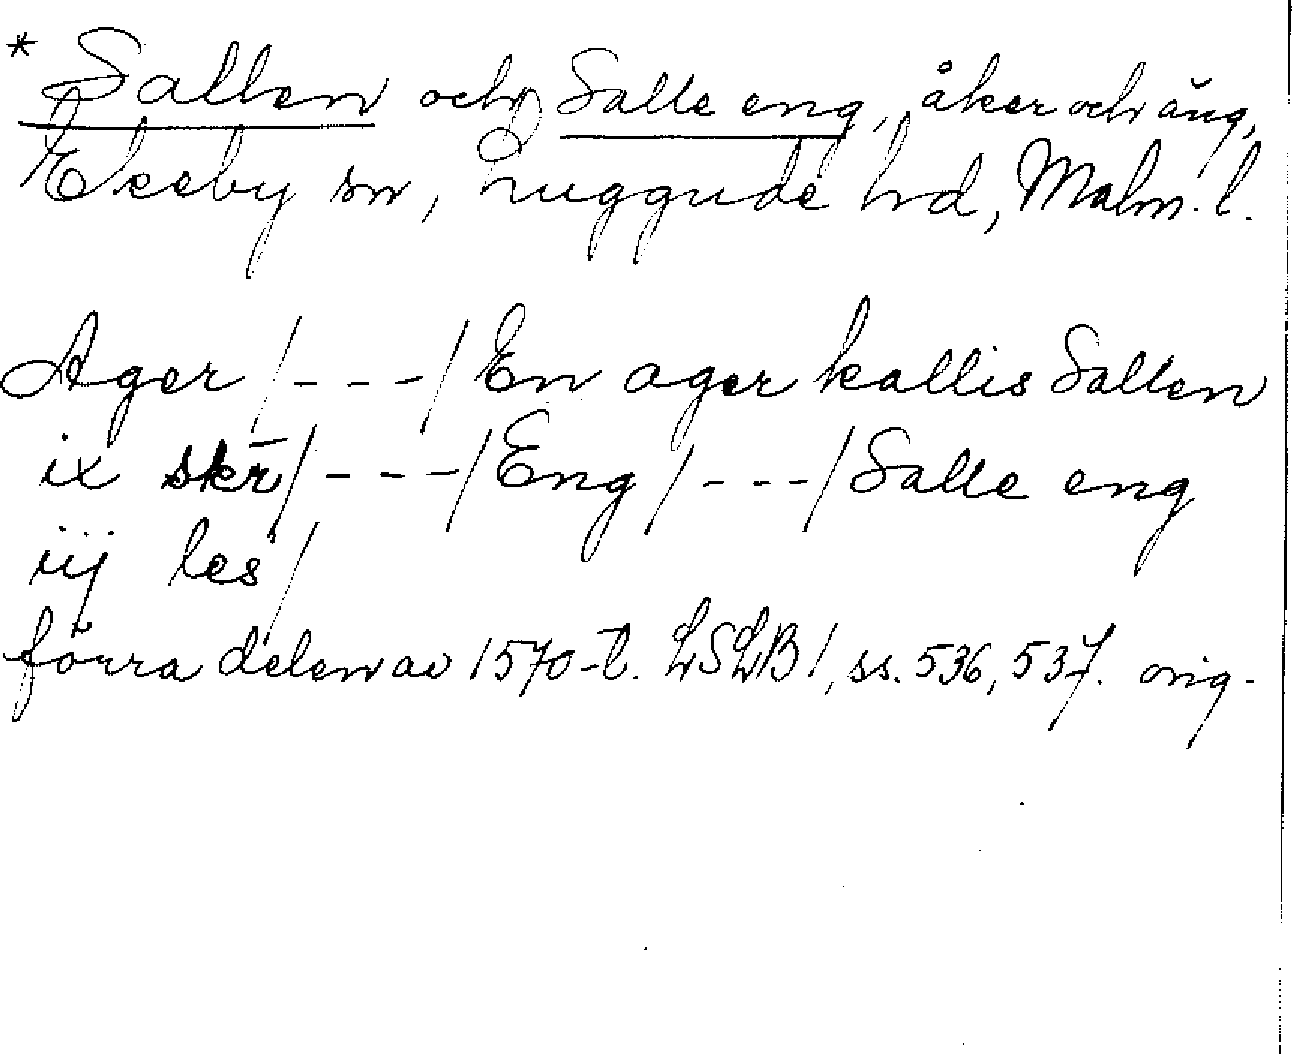 * Sallen och Salle eng, åker och äng,
Ekeby sn, Luggude hd, Malm. l.
Ager /---/ En ager kallis Sallen
ix skr̄ /---/ Eng /---/ Salle eng
iij les /
förra delen av 1570-t. LSLB 1, ss. 536, 537. orig.